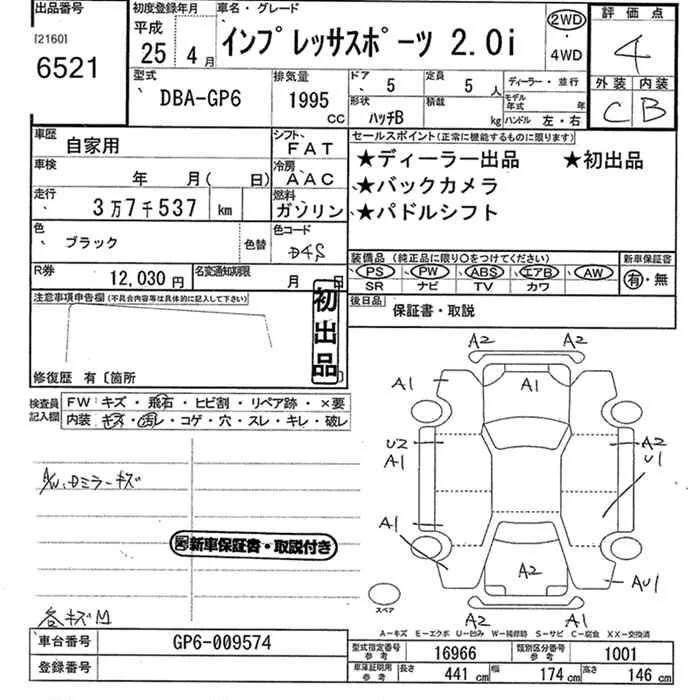 出品番号
[2160]
6521
初度登録年月
平成
25 4月
車名・グレード
インプレッサスポーツ 2.0i
2WD
・
4WD
評価点
4
外装 内装
C B
型式
DBA-GP6
排気量
1995
CC
ドア 5
定員 5人
形状 ハッチB
積載 kg
ディーラー・並行
モデル年式 年
ハンドル 左・右
車歴 自家用
シフト FAT
車検 年 月( 日)
冷房 AAC
走行 3万7千537 km
燃料 ガソリン
色 ブラック 色替
色コード D4S
R券 12,030円
名変通知期限 月 日
セールスポイント(正常に機能するものに限ります)
★ディーラー出品 ★初出品
★バックカメラ
★パドルシフト
装備品 (純正品に限り○をつけてください)
新車保証書
PS PW ABS エアB AW
SR ナビ TV カワ
有・無
後日品
保証書・取説
注意事項申告欄(不具合内容等は具体的に記入して下さい)
初出品
修復歴 有〔箇所 〕
検査員記入欄
FW:キズ・飛石・ヒビ割・リペア跡・×要
内装:キズ・汚レ・コゲ・穴・スレ・キレ・破レ
A/W、Dミラーキズ
新車保証書・取説付き
各キズM
A2 A2
A1 A1
U2 A2
A1 U1
A1
A2 AU1
A2 A1
スペア
A-キズ E-エクボ U-凹み W-補修跡 S-サビ C-腐食 XX-交換済
車台番号 GP6-009574
登録番号
型式指定番号 参考 16966
類別区分番号 参考 1001
車庫証明用 参考 長さ 441cm 幅 174cm 高さ 146cm